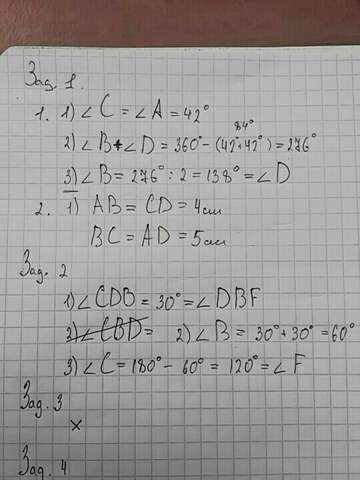 Зад. 1.
1. 1) ∠C = ∠A = 42°
84°
2) ∠B + ∠D = 360° - (42° + 42°) = 276°
3) ∠B = 276° : 2 = 138° = ∠D
2. 1) AB = CD = 4 см
BC = AD = 5 см
Зад. 2
1) ∠CDB = 30° = ∠DBF
2) ∠CBD = 2) ∠B = 30° + 30° = 60°
3) ∠C = 180° - 60° = 120° = ∠F
Зад. 3
x
Зад. 4